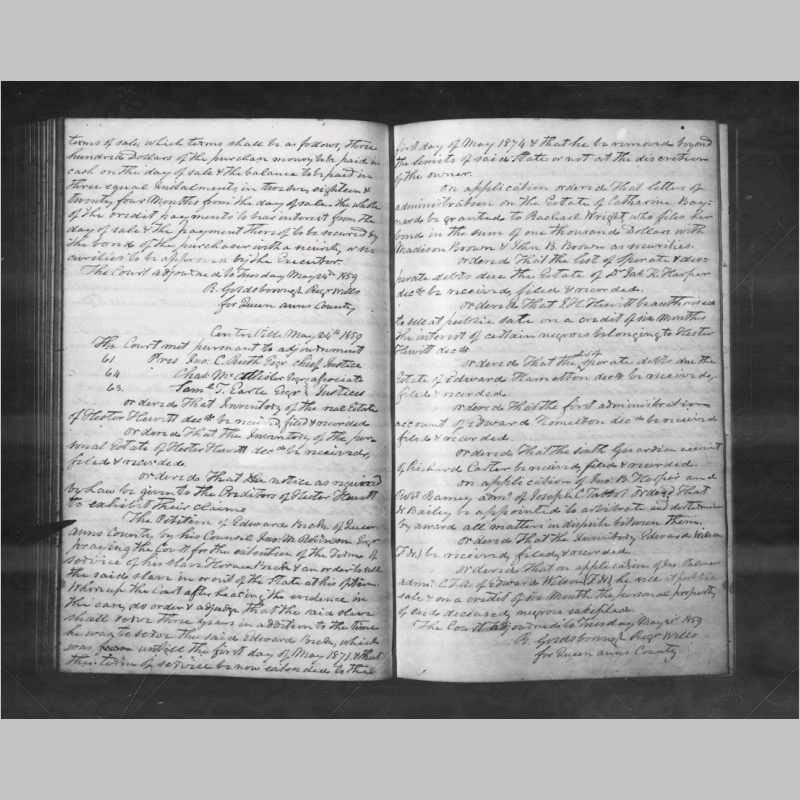 terms of sale, which terms shall be as follows, three
hundred Dollars of the purchase money to be paid in
cash on the day of sale & the balance to be paid in
three equal instalments in twelve, eighteen &
twenty four Months from the day of sale. the whole
of the credit payments to bear interest from the
day of sale & the payment thereof to be secured by
the bond of the purchaser with a security, or se
curities to be approved by the Executor.
The Court adjourned to Tuesday May 24th 1859
B. Goldsborough Regr Wills
for Queen anns County
Centreville May 24th 1859
The Court met pursuant to adjournment
61 Pres Jno. C. Ruth Esqr chief Justice
64 Chas McAllister Esqr associate
63. Saml T. Earle Esqr Justices
ordered that Inventory of the real Estate
of Hester Hewitt decd be received filed & recorded
ordered that the Inventory of the per
sonal Estate of Hester Hewitt decd be received,
filed & recorded.
ordered that notice as required
by Law be given to the Creditors of Hester Hewitt
to exhibit their claims
The Petition of Edward of Queen
anns County, by his Council Jno. M. Robinson Esqr
praying the Court for the extention of the Time of
service of his slave & an order to sell
the said slave in or out of the State at his option
Whereup the Court after hearing the evidence in
the case, do order & adjudge that the said slave
shall serve three years in addition to the time
he was to serve the said Edward which
was until the first day of May 1871, & that
the term of service be now extended to the
first day of May 1874 & that he be removed beyond
the limits of said State or not at the discretion
of the owner.
on application ordered that letters of
administration on the Estate of Catharine Bay-
nard be granted to Rachael Wright, who files her
bond in the sum of one thousand Dollars with
Madison Brown & John B. Brown as securities.
ordered that the list of sperate & des-
perate debts due the Estate of Dr Jas. H. Harper
decd be received, filed & recorded.
ordered that Hewitt be authorised
to sell at public sale on a credit of six Months
the interest of certain negroes belonging to Hester
Hewitt decd.
ordered that the list sperate debts due the
Estate of Edward Hamelton decd be received,
filed & recorded.
ordered that the first administration
account of Edward Hamelton decd be received
filed & recorded.
ordered that the sixth Guardian account
of Richard Carter be received, filed & recorded.
on application of Jno. B. Harper and
Barney Admr of Joseph C. Ordered That
Bailey be appointed to arbitrate and determine
by award all matters in dispute between them.
ordered that the Inventory Edward Wilson
be received, filed, & recorded.
ordered that on application of Jno. Palmer
admr C.T.A. of Edward Wilson he sell at public
sale & on a credit of six Month the personal property
of said deceased, negroes excepted.
The Court adjourned to Tuesday May 31st 1859
B. Goldsborough Regr Wills
for Queen anns County